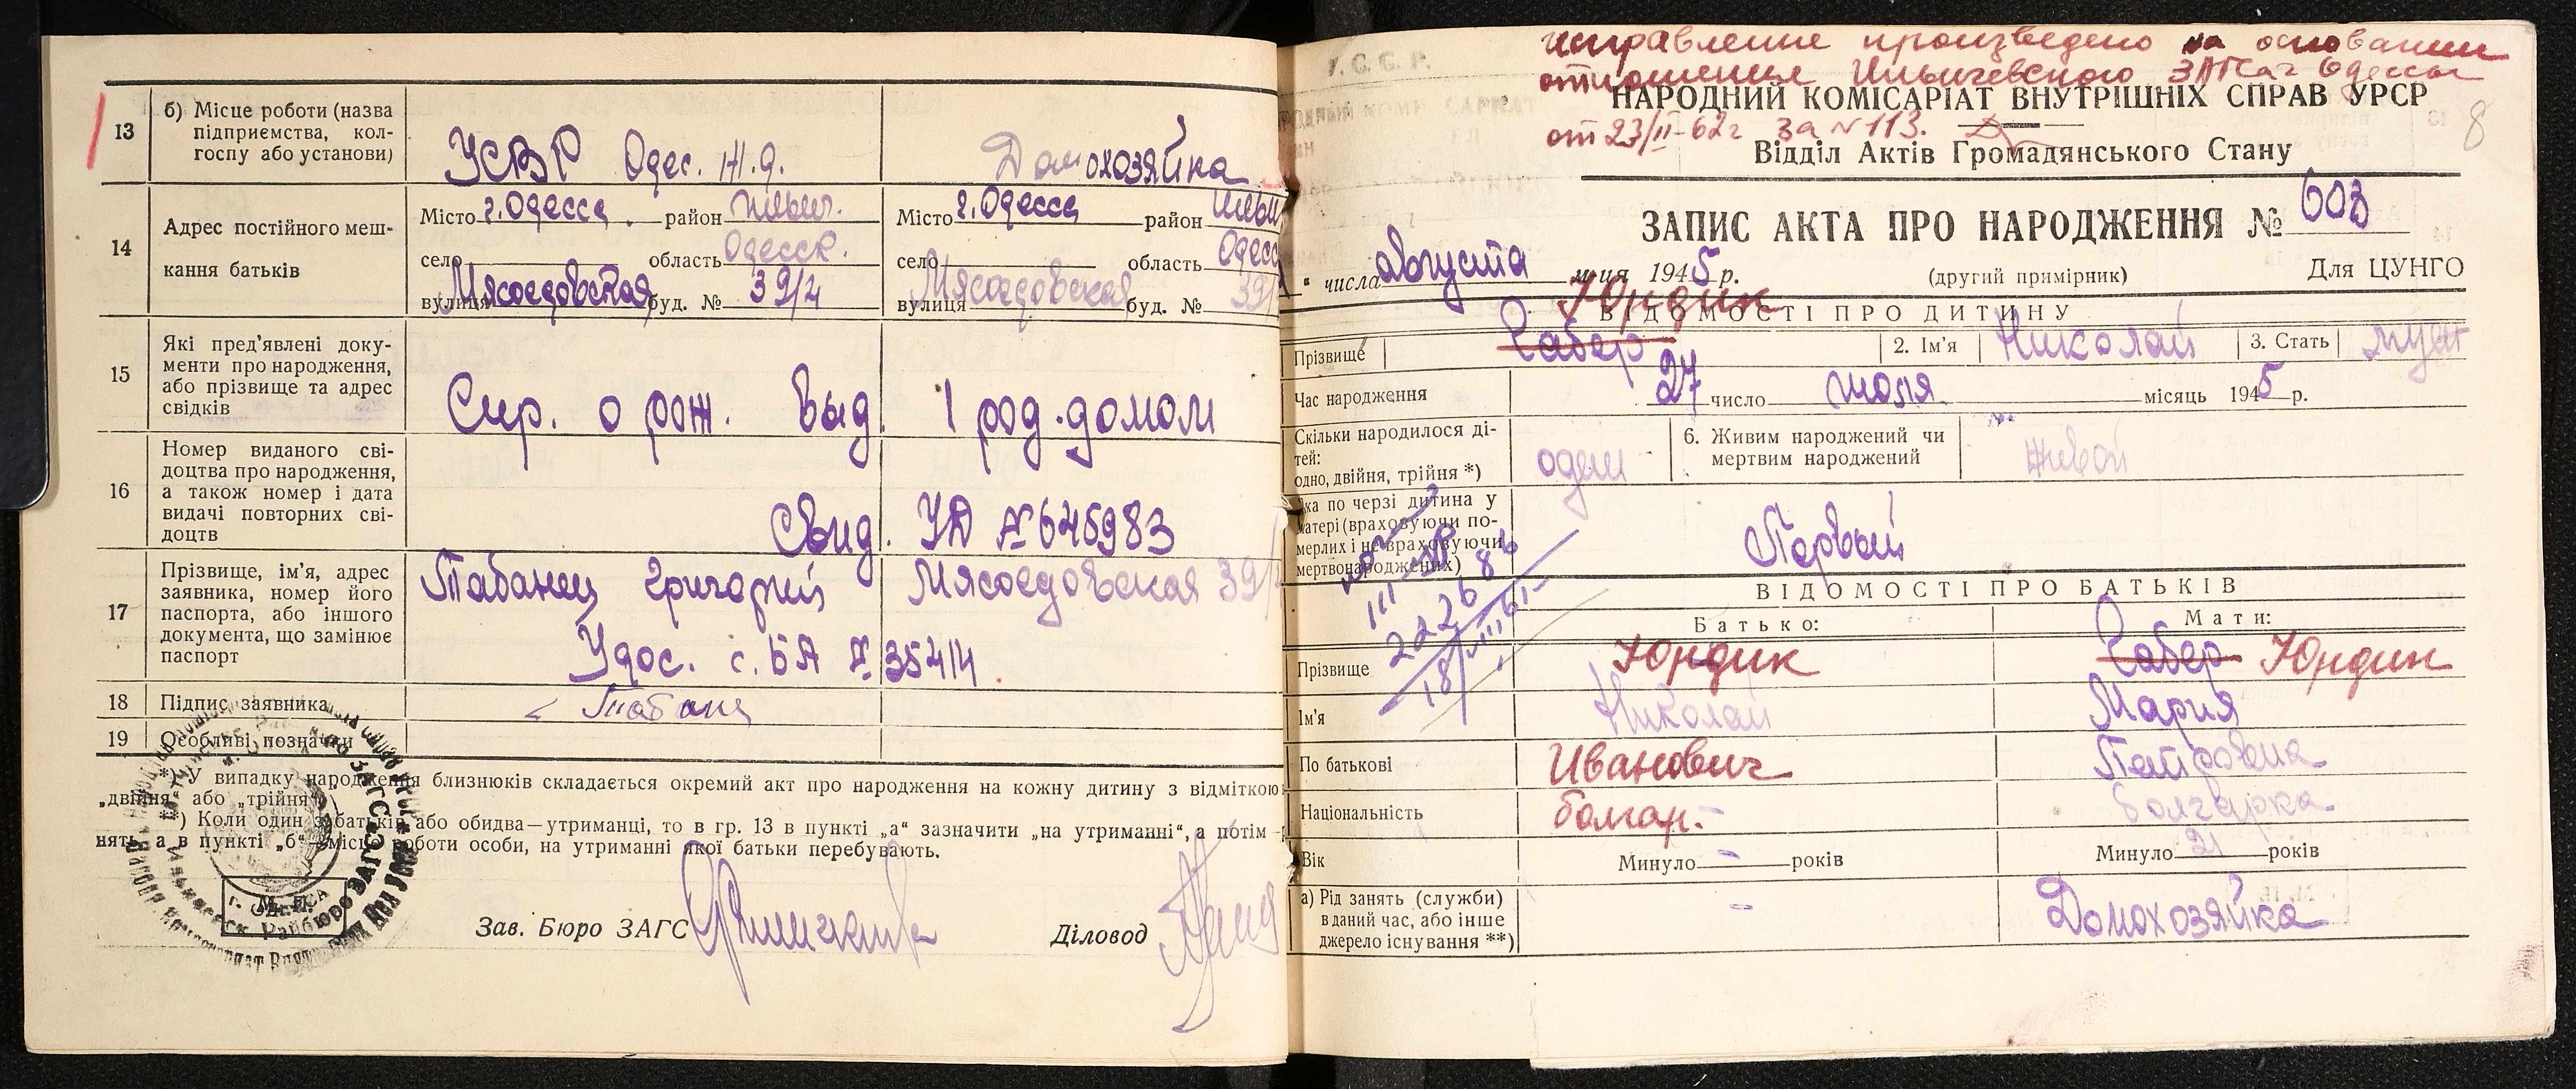 13
б) Місце роботи (назва
підприємства, кол-
госпу або установи)
УСВР Одес. ж.д.
Домохозяйка
14
Адрес постійного меш-
кання батьків
Місто г. Одесса район Ильич.
село область Одесск.
вулиця Мясоедовская буд. № 39/2
Місто г. Одесса район Ильи
село область Одесс
вулиця Мясоедовская буд. № 39/
15
Які пред'явлені доку-
менти про народження,
або прізвище та адрес
свідків
Спр. о рож. выд. 1 род. домом
16
Номер виданого сві-
доцтва про народження,
а також номер і дата
видачі повторних сві-
доцтв
Свид. УД № 645983
17
Прізвище, ім'я, адрес
заявника, номер його
паспорта, або іншого
документа, що замінює
паспорт
Табанец Григорий Мясоедовская 39/
Удос. с. БА № 35414
18
Підпис заявника
19
Особливі позначки
*) У випадку народження близнюків складається окремий акт про народження на кожну дитину з відміткою
„двійня“ або „трійня“.
) Коли один з батьків або обидва—утриманці, то в гр. 13 в пункті „а“ зазначити „на утриманні“, а потім
нять, а в пункті „б“—місце роботи особи, на утриманні якої батьки перебувають.
М. П.
Зав. Бюро ЗАГС
Діловод
исправление произведено на основании
отношения Ильичевского ЗАГСа г Одессы
от 23/II-62г за № 113.
8
НАРОДНИЙ КОМІСАРІАТ ВНУТРІШНІХ СПРАВ УРСР
Відділ Актів Громадянського Стану
ЗАПИС АКТА ПРО НАРОДЖЕННЯ № 603
" числа августа м-ця 1945 р.
(другий примірник)
Для ЦУНГО
Юрдик
ВІДОМОСТІ ПРО ДИТИНУ
Прізвище Сабер
2. Ім'я Николай
3. Стать муж
Час народження 27 число июля місяць 1945 р.
Скільки народилося ді-
тей:
одно, двійня, трійня *)
один
6. Живим народжений чи
мертвим народжений
живой
Яка по черзі дитина у
матері (враховуючи по-
мерлих і не враховуючи
мертвонароджених)
Первый
ВІДОМОСТІ ПРО БАТЬКІВ
Батько:
Мати:
Прізвище Юрдик Сабер Юрдик
Ім'я Николай Мария
По батькові Иванович Петровна
Національність болгар. Болгарка
Вік Минуло - років Минуло 21 років
а) Рід занять (служби)
в даний час, або інше
джерело існування **)
-
Домохозяйка